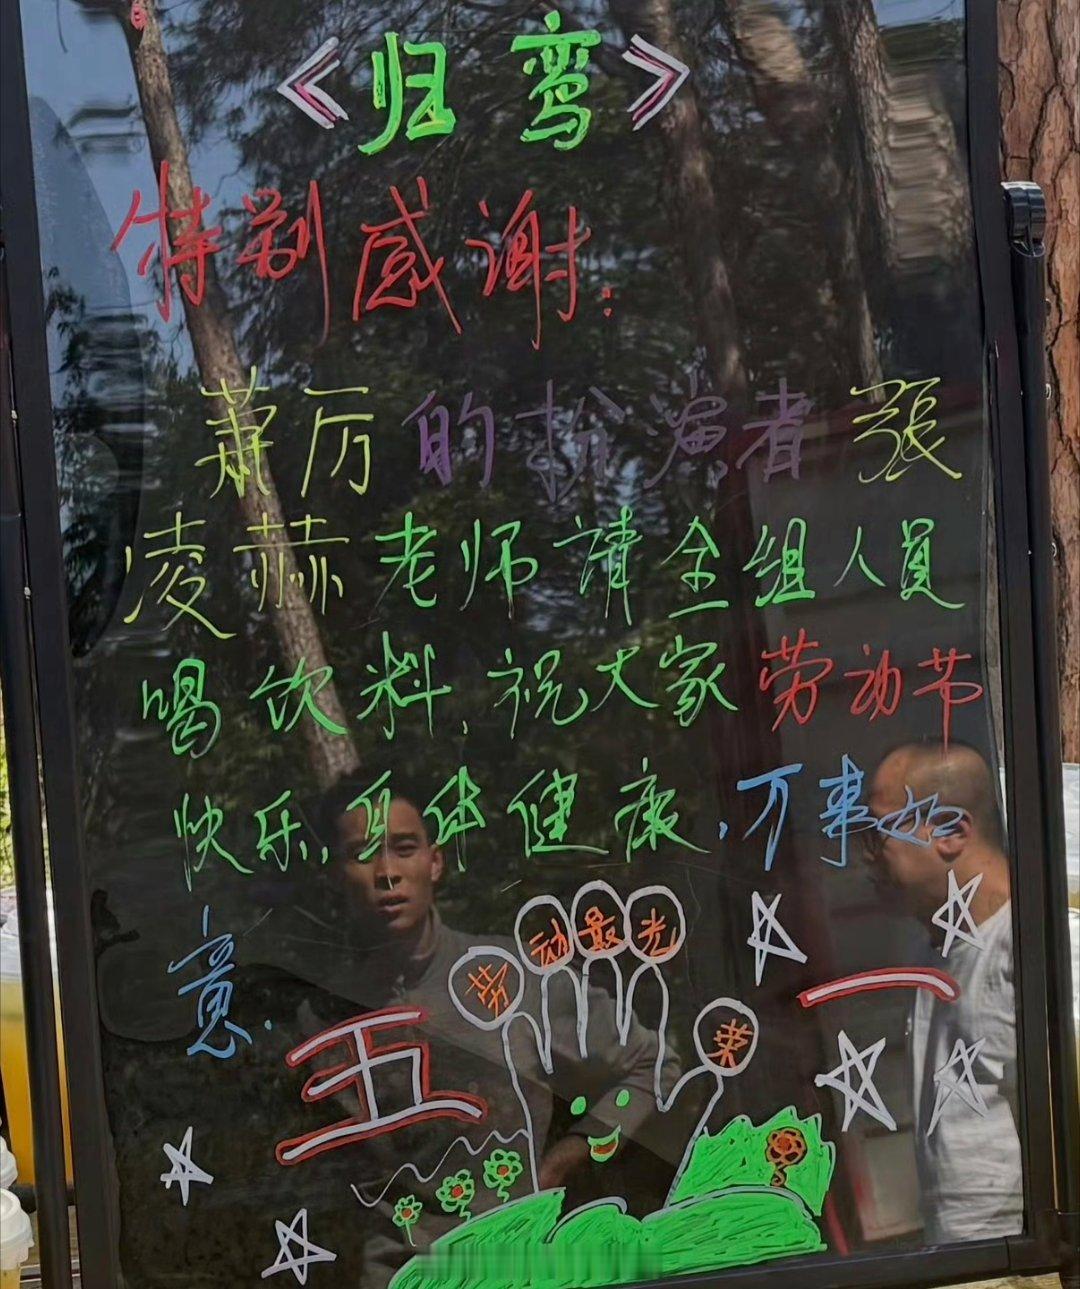 《归鸾》
特别感谢:
萧厉的扮演者张
凌赫老师请全组人员
喝饮料,祝大家劳动节
快乐,身体健康,万事如
意.
劳动最光荣
五一